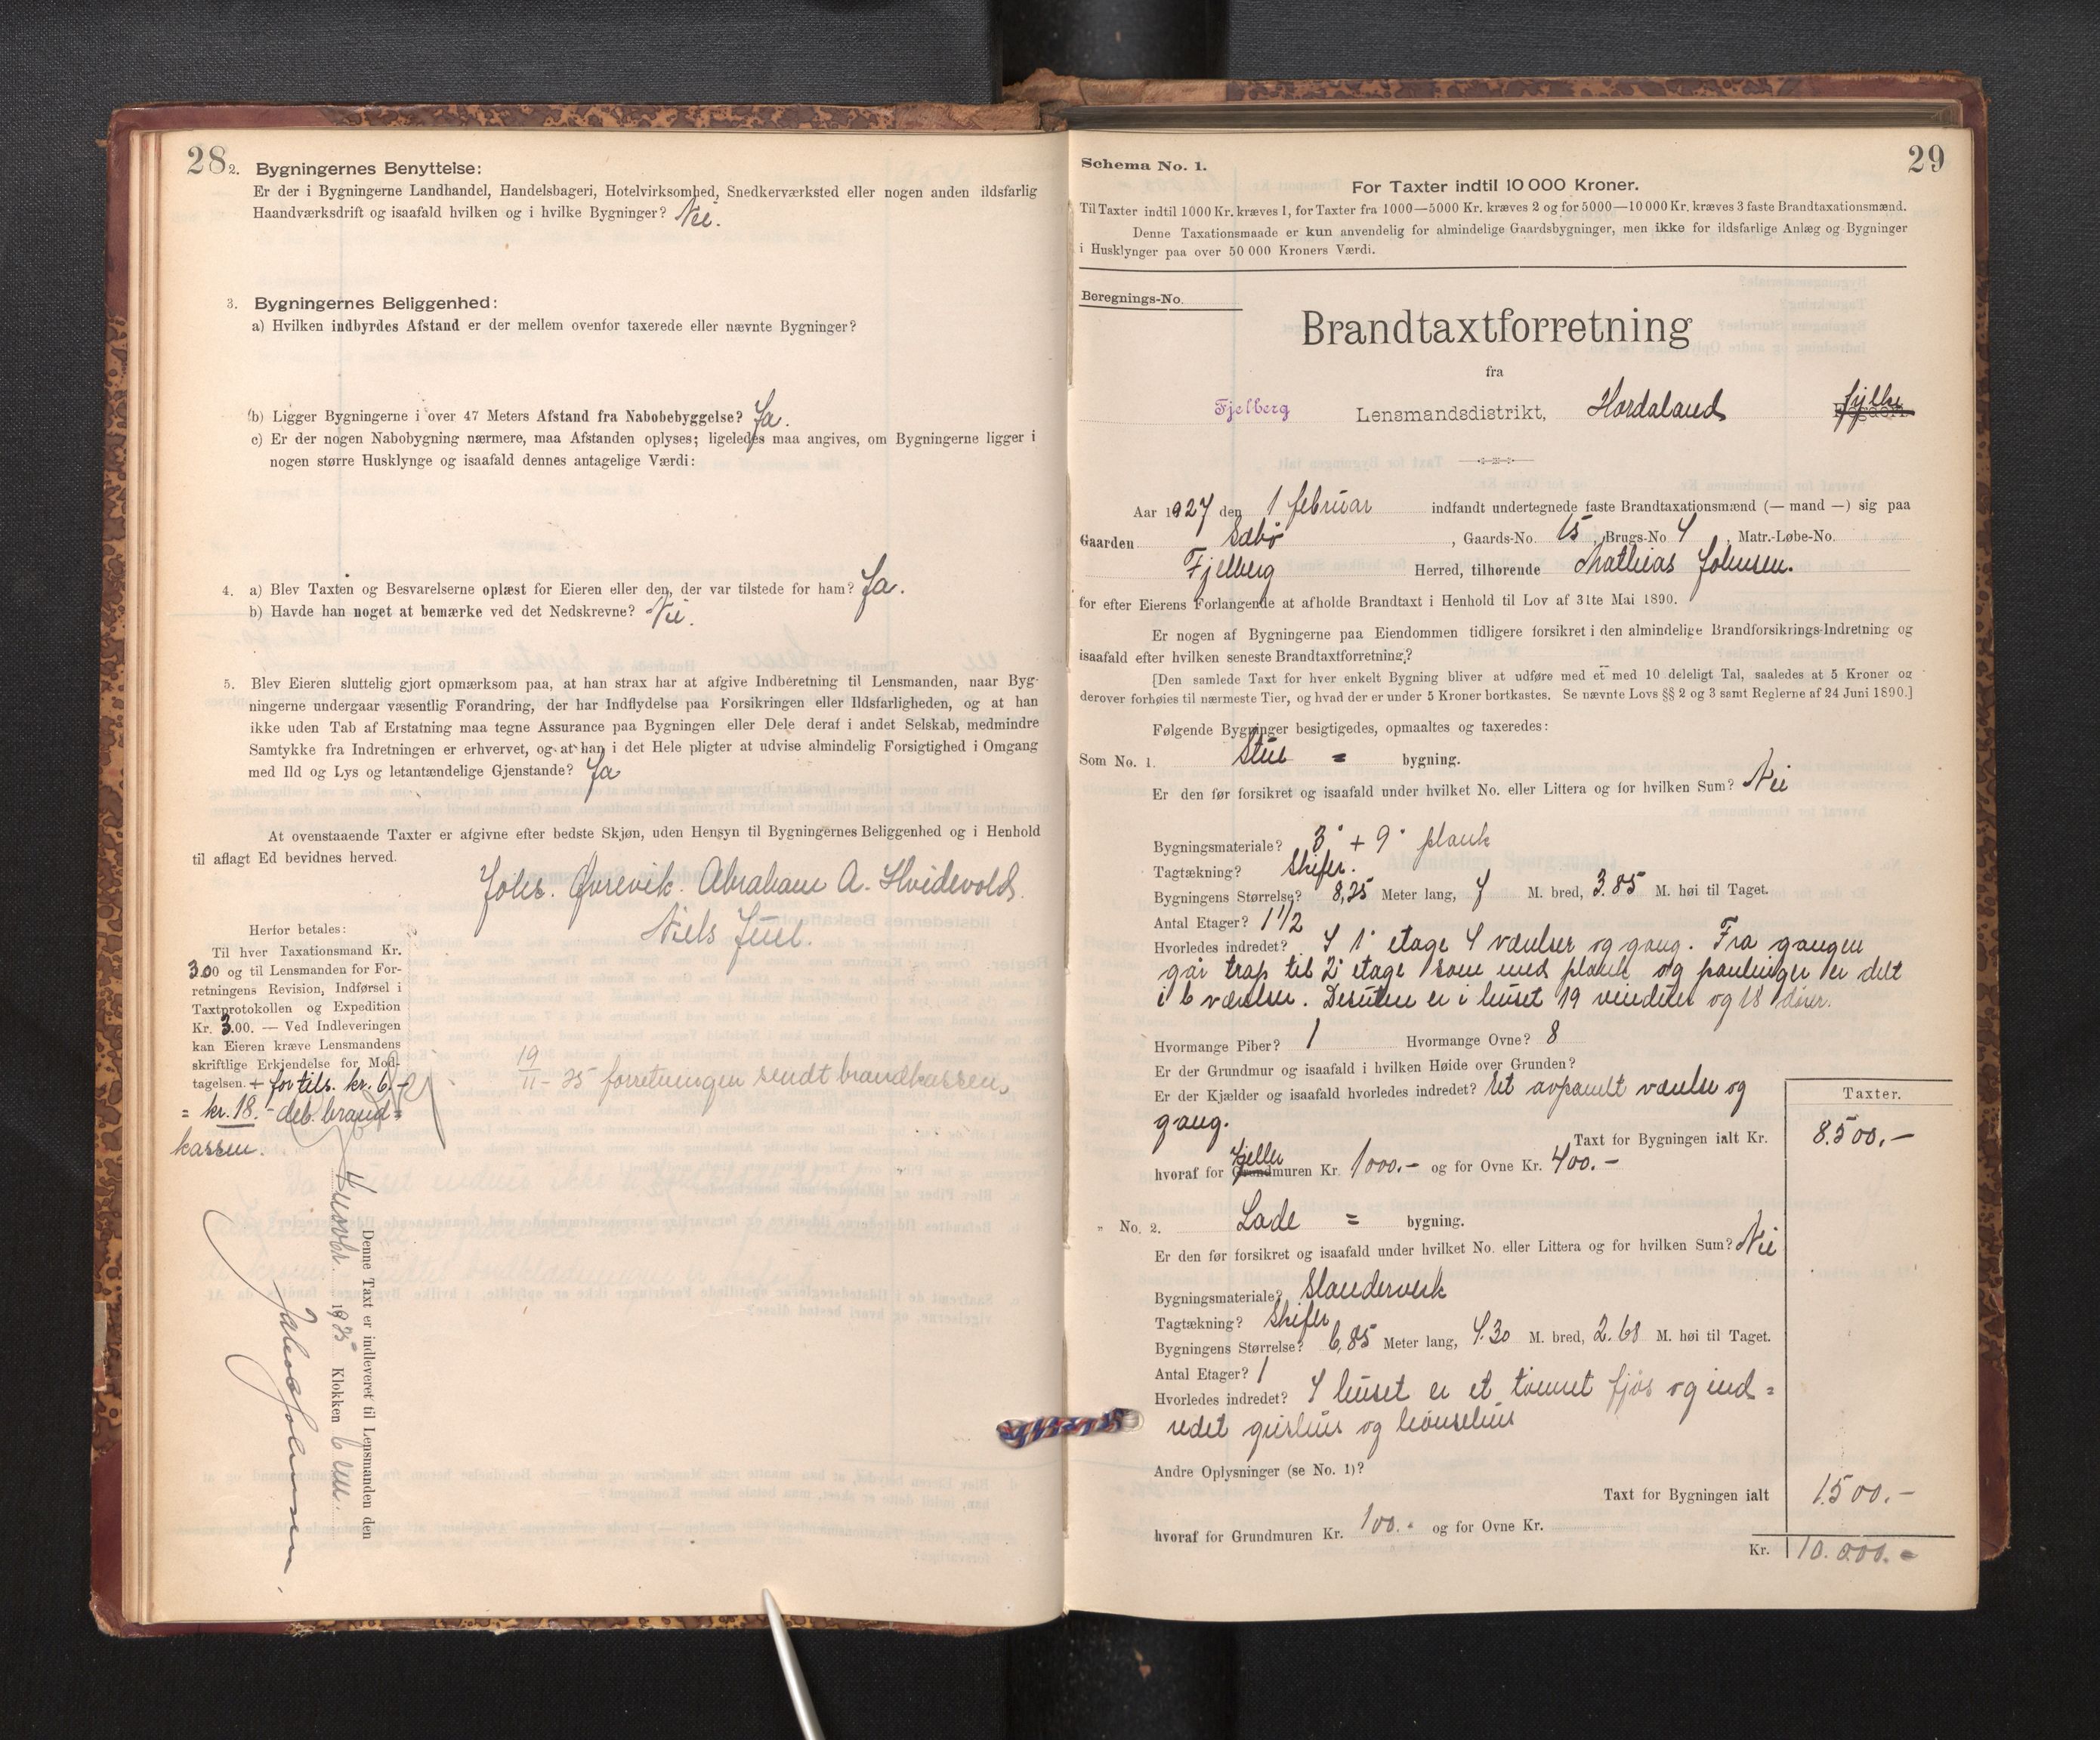 28
2. Bygningernes Benyttelse:
Er der i Bygningerne Landhandel, Handelsbageri, Hotelvirksomhed, Snedkerværksted eller nogen anden ildsfarlig
Haandværksdrift og isaafald hvilken og i hvilke Bygninger? Nei.
3. Bygningernes Beliggenhed:
a) Hvilken indbyrdes Afstand er der mellem ovenfor taxerede eller nævnte Bygninger?
(b) Ligger Bygningerne i over 47 Meters Afstand fra Nabobebyggelse? Ja.
c) Er der nogen Nabobygning nærmere, maa Afstanden oplyses; ligeledes maa angives, om Bygningerne ligger i
nogen større Husklynge og isaafald dennes antagelige Værdi:
4. a) Blev Taxten og Besvarelserne oplæst for Eieren eller den, der var tilstede for ham? Ja.
b) Havde han noget at bemærke ved det Nedskrevne? Nei.
5. Blev Eieren sluttelig gjort opmærksom paa, at han strax har at afgive Indberetning til Lensmanden, naar Byg-
ningerne undergaar væsentlig Forandring, der har Indflydelse paa Forsikringen eller Ildsfarligheden, og at han
ikke uden Tab af Erstatning maa tegne Assurance paa Bygningen eller Dele deraf i andet Selskab, medmindre
Samtykke fra Indretningen er erhvervet, og at han i det Hele pligter at udvise almindelig Forsigtighed i Omgang
med Ild og Lys og letantændelige Gjenstande? Ja
At ovenstaaende Taxter er afgivne efter bedste Skjøn, uden Hensyn til Bygningernes Beliggenhed og i Henhold
til aflagt Ed bevidnes herved.
Johs. Øvrevik. Abraham A. Hvidevold.
Niels Juel.
Herfor betales:
Til hver Taxationsmand Kr.
3.00 og til Lensmanden for For-
retningens Revision, Indførsel i
Taxtprotokollen og Expedition
Kr. 3.00. — Ved Indleveringen
kan Eieren kræve Lensmandens
skriftlige Erkjendelse for Mod-
tagelsen. + for tils. kr. 6,-
= kr. 18.- deb. brand=
kassen.
19/11 - 35 forretningen sendt brandkassen
Denne Taxt er indleveret til Lensmanden den
novbr. 1935 Klokken 6 em.
Jakob Johnsen.
29
Schema No. 1.
For Taxter indtil 10 000 Kroner.
Til Taxter indtil 1000 Kr. kræves 1, for Taxter fra 1000—5000 Kr. kræves 2 og for 5000—10 000 Kr. kræves 3 faste Brandtaxationsmænd.
Denne Taxationsmaade er kun anvendelig for almindelige Gaardsbygninger, men ikke for ildsfarlige Anlæg og Bygninger
i Husklynger paa over 50 000 Kroners Værdi.
Beregnings-No.
Brandtaxtforretning
fra
Fjelberg Lensmandsdistrikt, Hordaland fylke
Aar 1927 den 1 februar indfandt undertegnede faste Brandtaxationsmænd (— mand —) sig paa
Gaarden Sæbø, Gaards-No. 15, Brugs-No 4, Matr.-Løbe-No.
Fjelberg Herred, tilhørende Mathias Johnsen.
for efter Eierens Forlangende at afholde Brandtaxt i Henhold til Lov af 31te Mai 1890.
Er nogen af Bygningerne paa Eiendommen tidligere forsikret i den almindelige Brandforsikrings-Indretning og
isaafald efter hvilken seneste Brandtaxtforretning?
[Den samlede Taxt for hver enkelt Bygning bliver at udføre med et med 10 deleligt Tal, saaledes at 5 Kroner og
derover forhøies til nærmeste Tier, og hvad der er under 5 Kroner bortkastes. Se nævnte Lovs §§ 2 og 3 samt Reglerne af 24 Juni 1890.]
Følgende Bygninger besigtigedes, opmaaltes og taxeredes:
Som No. 1. Stue = bygning.
Er den før forsikret og isaafald under hvilket No. eller Littera og for hvilken Sum? Nei
Bygningsmateriale? 3" + 9" plank
Tagtækning? Skifer.
Bygningens Størrelse? 8,35 Meter lang, 7 M. bred, 3.85 M. høi til Taget.
Antal Etager? 1 1/2
Hvorledes indredet? I 1' etage 4 værelser og gang. Fra gangen
går trap til 2' etage som med plank og panlinger er delt
i 6 værelser. Desuten er i huset 19 vinduer og 18 dører.
Hvormange Piber? 1 Hvormange Ovne? 8
Er der Grundmur og isaafald i hvilken Høide over Grunden?
Er der Kjælder og isaafald hvorledes indredet? Et avpanelt værelse og
gang.
Taxter.
Taxt for Bygningen ialt Kr. 8.500.-
hvoraf for Kjeller Grundmuren Kr. 1000.- og for Ovne Kr. 400.-
" No. 2. Lade = bygning.
Er den før forsikret og isaafald under hvilket No. eller Littera og for hvilken Sum? Nei
Bygningsmateriale? Standerverk
Tagtækning? Skifer
Bygningens Størrelse? 6,85 Meter lang, 4.30 M. bred, 2.68 M. høi til Taget.
Antal Etager? 1
Hvorledes indredet? I huset er et tømret fjøs og ind=
redet grishus og hønsehus
Andre Oplysninger (se No. 1)?
Taxt for Bygningen ialt 1.500.-
hvoraf for Grundmuren Kr. 100.- og for Ovne Kr.
Kr. 10.000.=